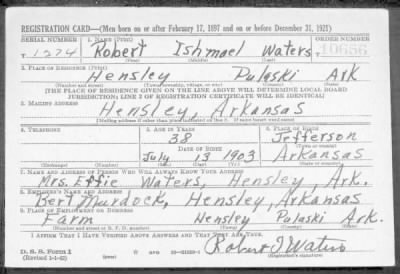 REGISTRATION CARD—(Men born on or after February 17, 1897 and on or before December 31, 1921)
SERIAL NUMBER 1. NAME (Print) ORDER NUMBER
T 1224 Robert Ishmael Waters 10656
(First) (Middle) (Last)
2. PLACE OF RESIDENCE (Print)
Hensley Pulaski Ark
(Number and street) (Town, township, village, or city) (County) (State)
[THE PLACE OF RESIDENCE GIVEN ON THE LINE ABOVE WILL DETERMINE LOCAL BOARD
JURISDICTION; LINE 2 OF REGISTRATION CERTIFICATE WILL BE IDENTICAL]
3. MAILING ADDRESS
Hensley, Arkansas
[Mailing address if other than place indicated on line 2. If same insert word same]
4. TELEPHONE 5. AGE IN YEARS 6. PLACE OF BIRTH
38 Jefferson
DATE OF BIRTH (Town or county)
July 13 1903 Arkansas
(Exchange) (Number) (Mo.) (Day) (Yr.) (State or country)
7. NAME AND ADDRESS OF PERSON WHO WILL ALWAYS KNOW YOUR ADDRESS
Mrs. Effie Waters, Hensley, Ark.
8. EMPLOYER'S NAME AND ADDRESS
Bert Murdock, Hensley, Arkansas
9. PLACE OF EMPLOYMENT OR BUSINESS
Farm Hensley Pulaski Ark.
(Number and street or R. F. D. number) (Town) (County) (State)
I AFFIRM THAT I HAVE VERIFIED ABOVE ANSWERS AND THAT THEY ARE TRUE.
D. S. S. Form 1
(Revised 1-1-42) (over) GPO 16—21630-1 Robert I Waters
(Registrant's signature)